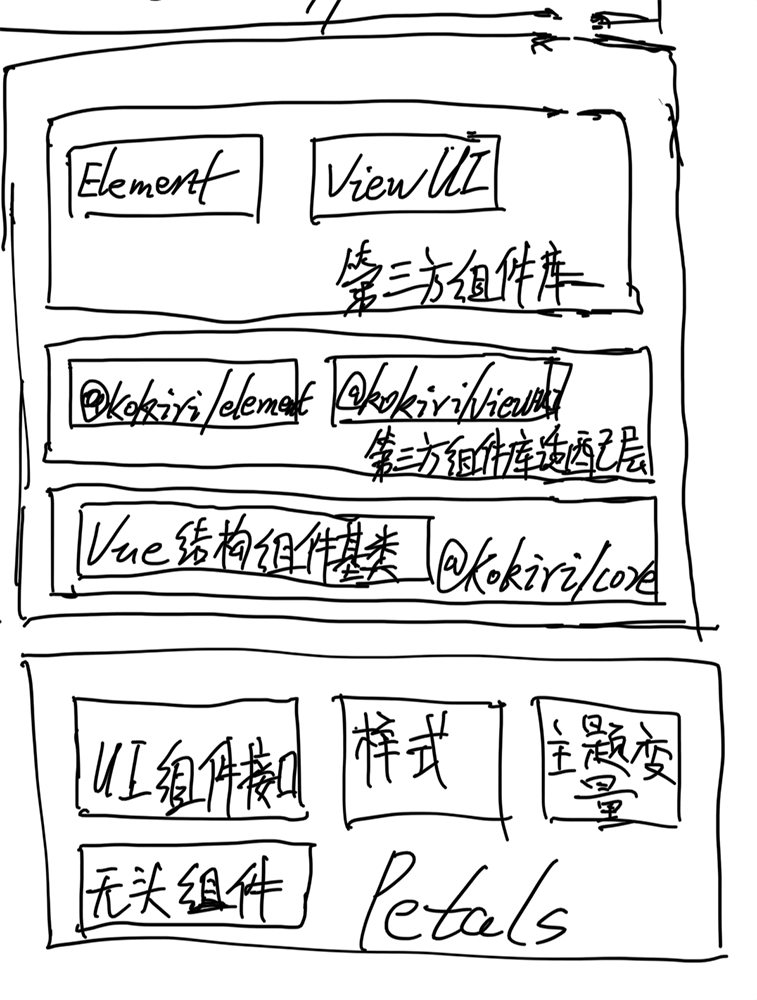 Element
View UI
第三方组件库
@kokiri/element
@kokiri/viewui
第三方组件库适配层
Vue结构组件基类
@kokiri/core
UI组件接口
样式
主题变
量
无头组件
Petals